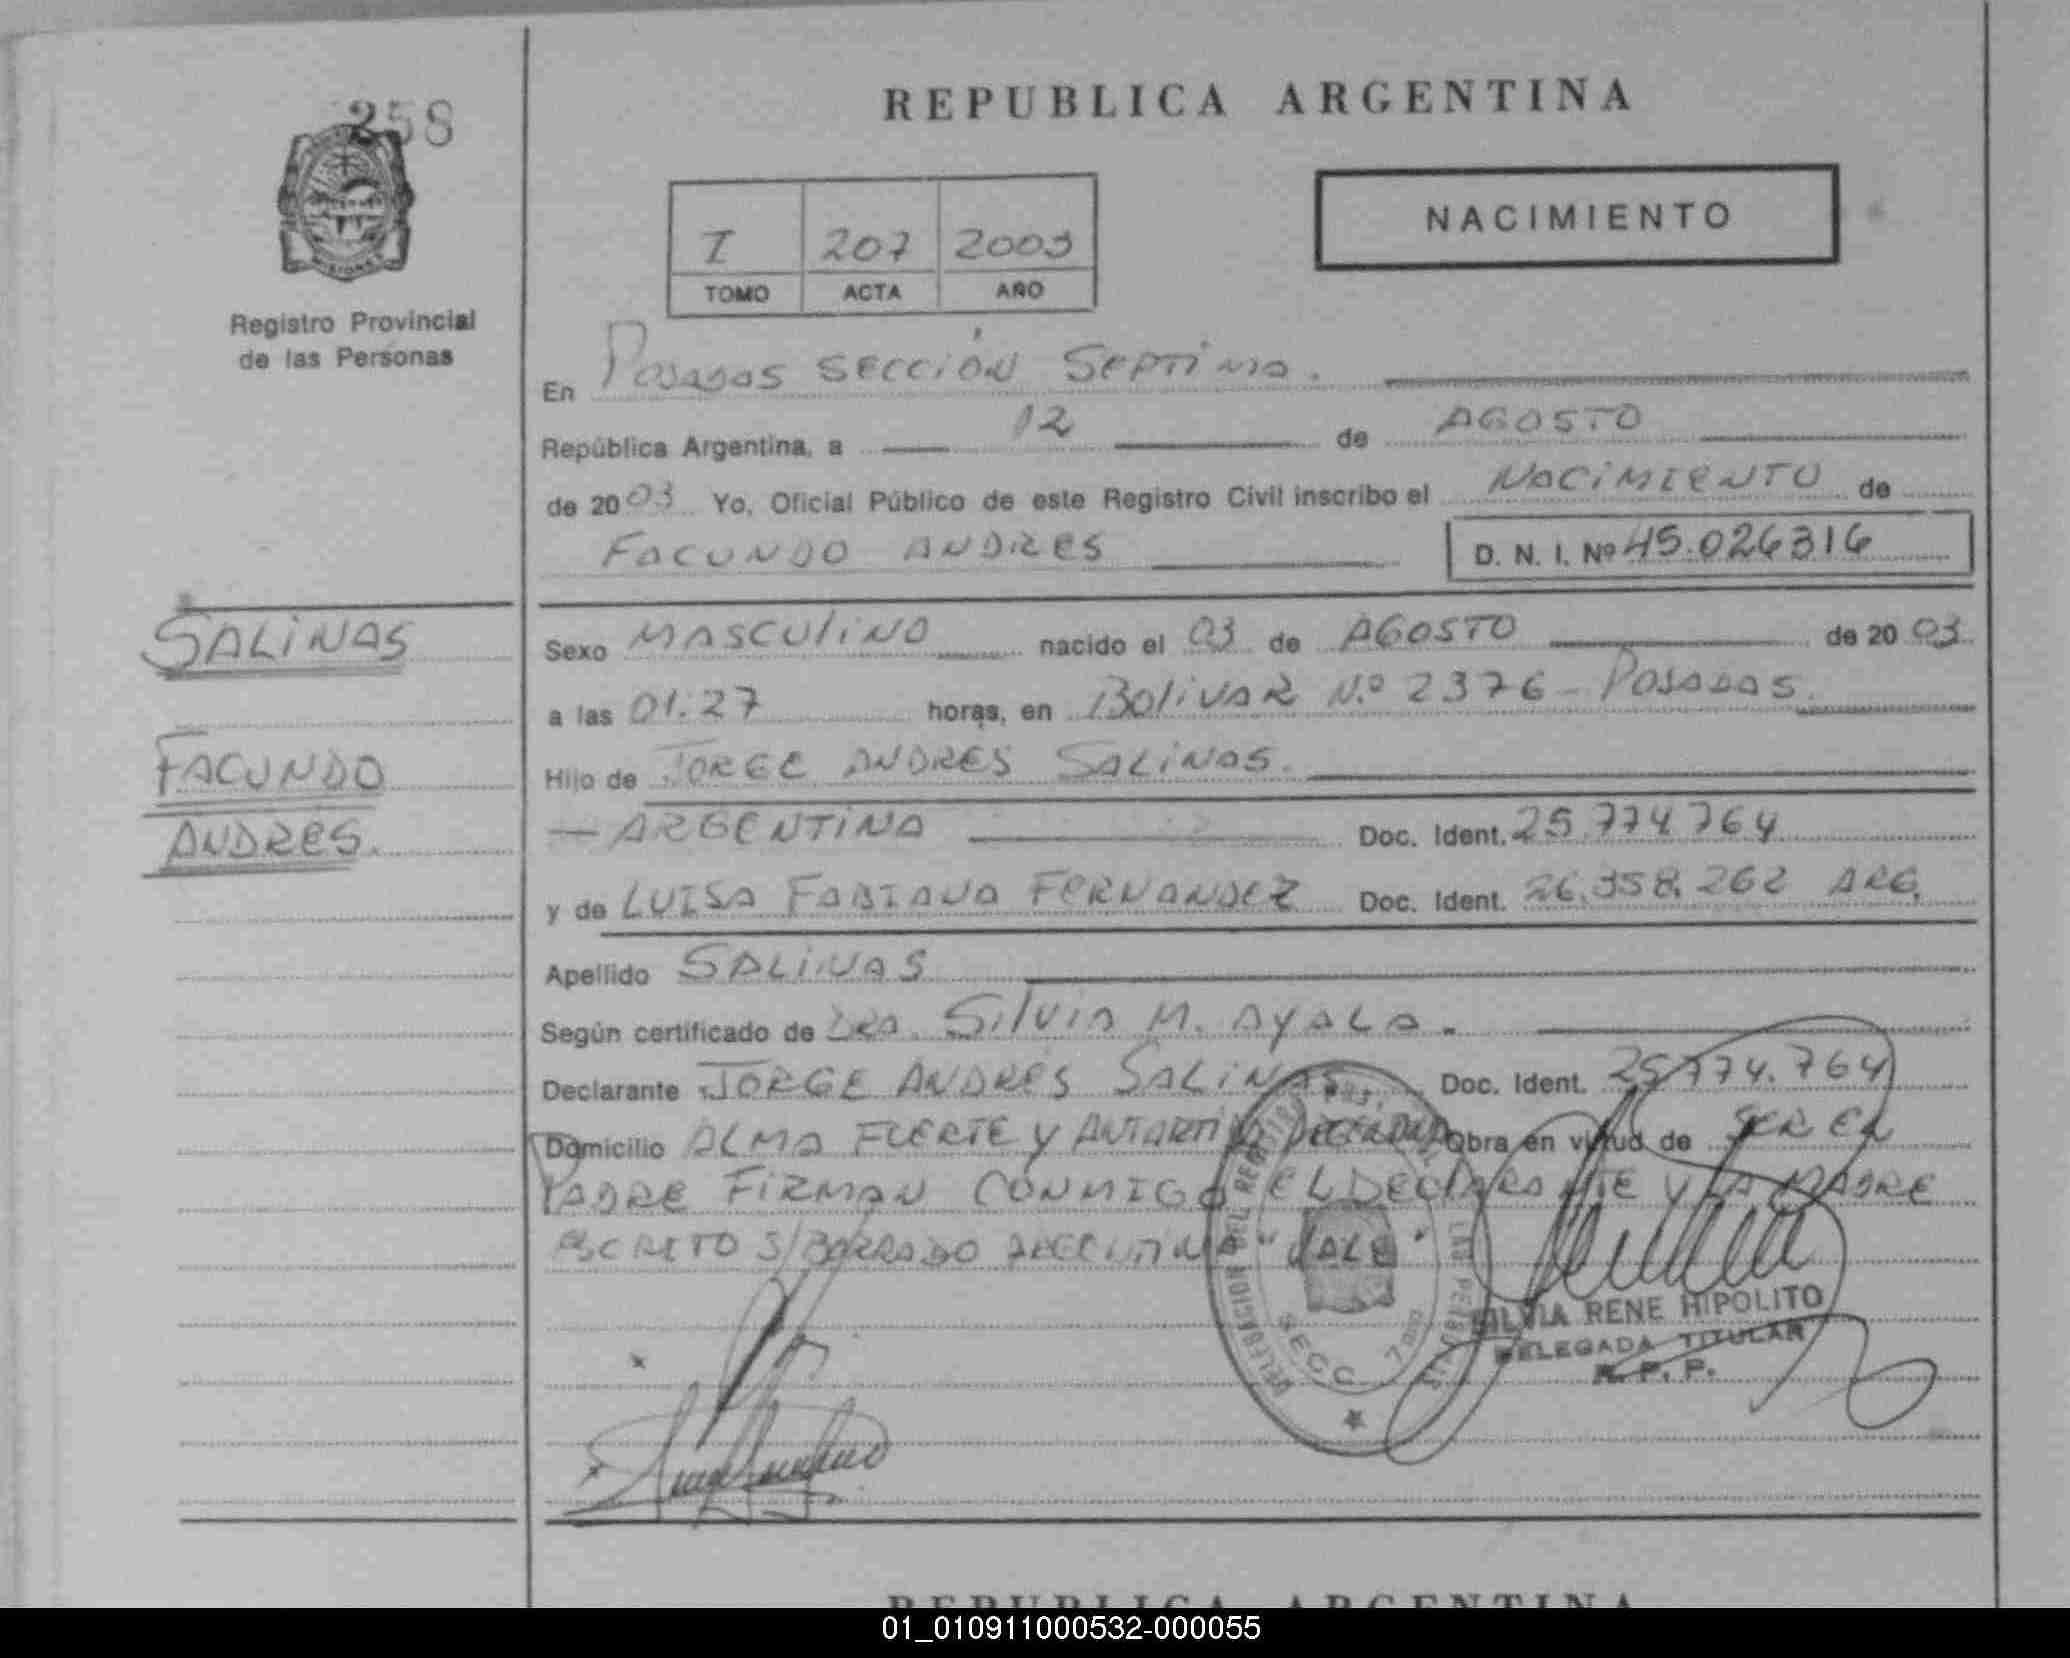 258
REPUBLICA ARGENTINA
MISIONES
Registro Provincial
de las Personas
I 207 2003
TOMO ACTA AÑO
NACIMIENTO
En Posadas SECCIÓN SEPTIMA.
República Argentina, a 12 de AGOSTO
de 2003 Yo, Oficial Público de este Registro Civil inscribo el NACIMIENTO de
FACUNDO ANDRES D. N. I. Nº 45.026316
SALINAS
FACUNDO
ANDRES.
Sexo MASCULINO nacido el 03 de AGOSTO de 2003
a las 01:27 horas, en Bolivar N.º 2376 - Posadas.
Hijo de JORGE ANDRES SALINAS.
— ARGENTINA Doc. Ident. 25.774764
y de LUISA FABIANA FERNANDEZ Doc. Ident. 26.358.262 ARG.
Apellido SALINAS
Según certificado de Dra. Silvia M. AYALA.
Declarante JORGE ANDRES SALINAS Doc. Ident. 25774.764
Domicilio ALMA FUERTE Y Obra en virtud de SER EL
PADRE FIRMAN CONMIGO EL DECLARANTE Y LA MADRE
ESCRITO S/BORRADO ARGENTINA "VALE"
DELEGACION DEL REGISTRO LAS PERSONAS
SECC. 7ma
SILVIA RENE HIPOLITO
DELEGADA TITULAR
R. P. P.
REPUBLICA ARGENTINA
01_010911000532-000055